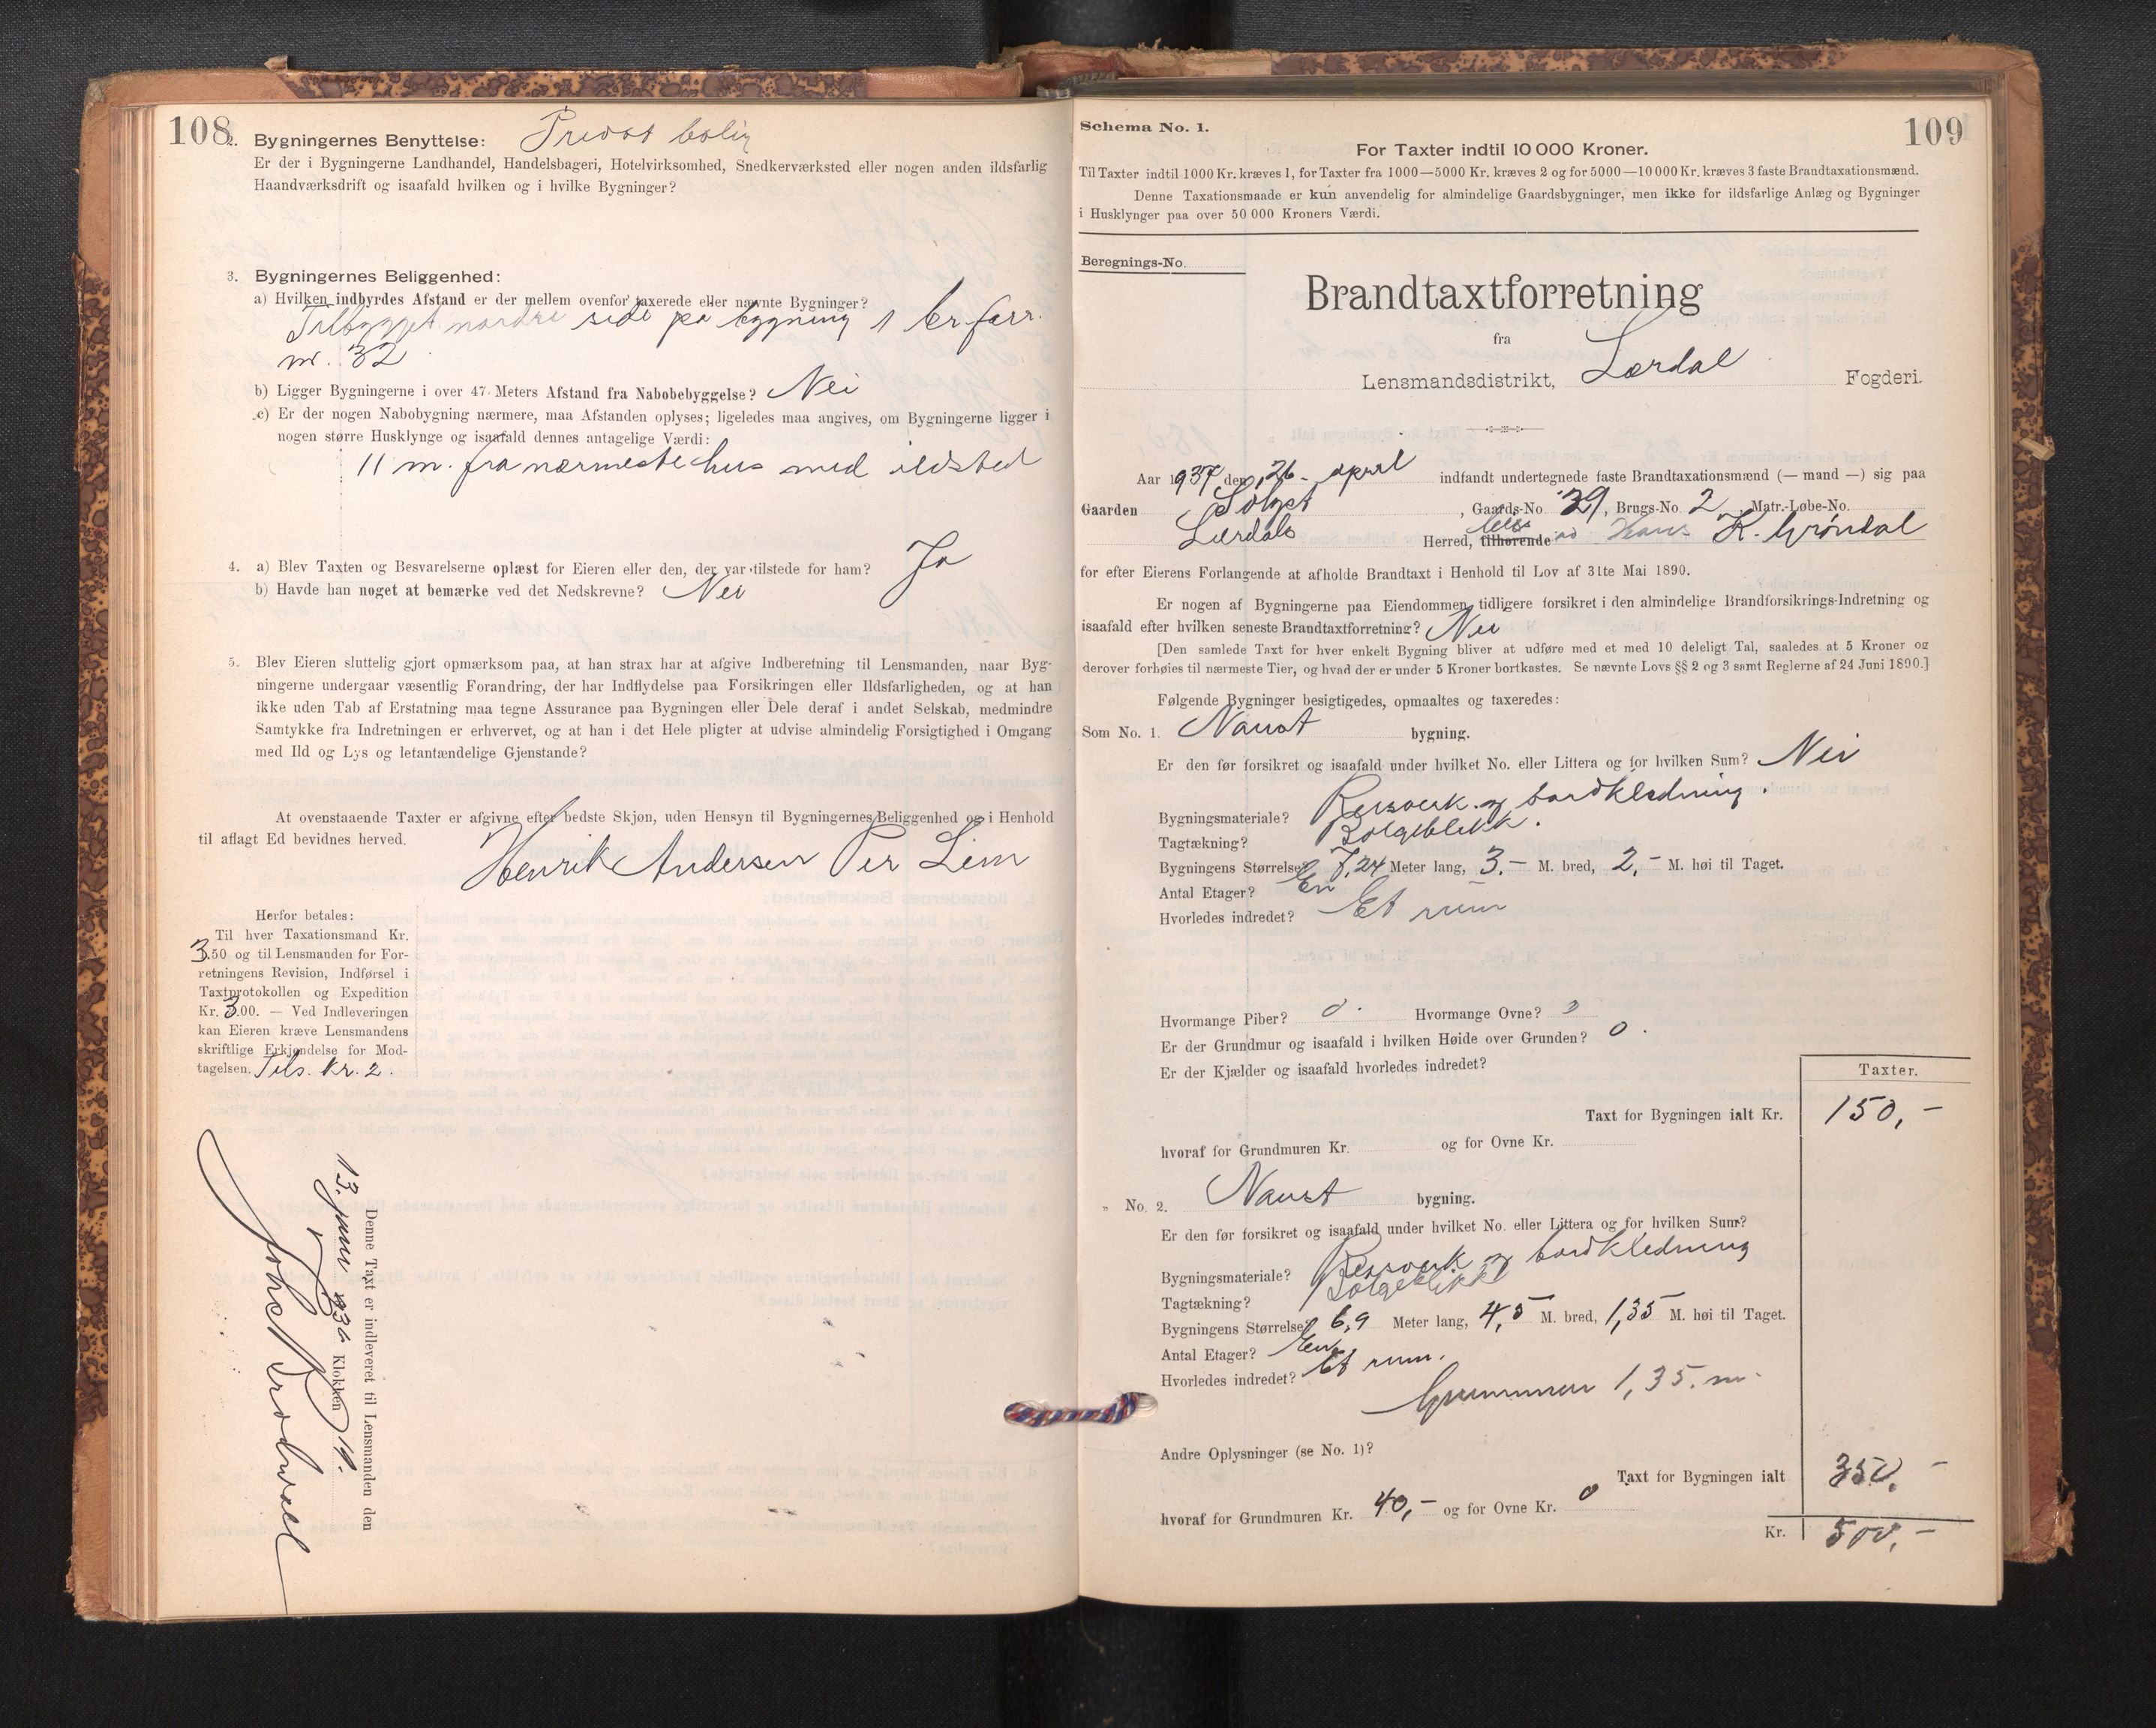 108
2. Bygningernes Benyttelse: Privat bolig
Er der i Bygningerne Landhandel, Handelsbageri, Hotelvirksomhed, Snedkerværksted eller nogen anden ildsfarlig
Haandværksdrift og isaafald hvilken og i hvilke Bygninger?
3. Bygningernes Beliggenhed:
a) Hvilken indbyrdes Afstand er der mellem ovenfor taxerede eller nævnte Bygninger?
Tilbygget nordre side på bygning 1 br.forr.
nr. 32
b) Ligger Bygningerne i over 47 Meters Afstand fra Nabobebyggelse? Nei
c) Er der nogen Nabobygning nærmere, maa Afstanden oplyses; ligeledes maa angives, om Bygningerne ligger i
nogen større Husklynge og isaafald dennes antagelige Værdi:
11 m. fra nærmeste hus med ildsted
4. a) Blev Taxten og Besvarelserne oplæst for Eieren eller den, der var tilstede for ham? Ja
b) Havde han noget at bemærke ved det Nedskrevne? Nei
5. Blev Eieren sluttelig gjort opmærksom paa, at han strax har at afgive Indberetning til Lensmanden, naar Byg-
ningerne undergaar væsentlig Forandring, der har Indflydelse paa Forsikringen eller Ildsfarligheden, og at han
ikke uden Tab af Erstatning maa tegne Assurance paa Bygningen eller Dele deraf i andet Selskab, medmindre
Samtykke fra Indretningen er erhvervet, og at han i det Hele pligter at udvise almindelig Forsigtighed i Omgang
med Ild og Lys og letantændelige Gjenstande?
At ovenstaaende Taxter er afgivne efter bedste Skjøn, uden Hensyn til Bygningernes Beliggenhed og i Henhold
til aflagt Ed bevidnes herved.
Henrik Andersen Per Lem
Herfor betales:
Til hver Taxationsmand Kr.
3.50 og til Lensmanden for For-
retningens Revision, Indførsel i
Taxtprotokollen og Expedition
Kr. 3.00. — Ved Indleveringen
kan Eieren kræve Lensmandens
skriftlige Erkjendelse for Mod-
tagelsen. Tils. kr. 2.
Denne Taxt er indleveret til Lensmanden den
13. juni 1936 Klokken 14.
109
Schema No. 1.
For Taxter indtil 10 000 Kroner.
Til Taxter indtil 1000 Kr. kræves 1, for Taxter fra 1000—5000 Kr. kræves 2 og for 5000—10 000 Kr. kræves 3 faste Brandtaxationsmænd.
Denne Taxationsmaade er kun anvendelig for almindelige Gaardsbygninger, men ikke for ildsfarlige Anlæg og Bygninger
i Husklynger paa over 50 000 Kroners Værdi.
Beregnings-No.
Brandtaxtforretning
fra
Lensmandsdistrikt, Lærdal Fogderi.
Aar 1937 den 26. april indfandt undertegnede faste Brandtaxationsmænd (— mand —) sig paa
Gaarden , Gaards-No 29, Brugs-No 2, Matr.-Løbe-No.
Lærdals Herred, tilhørende Hans K. Grøndal
for efter Eierens Forlangende at afholde Brandtaxt i Henhold til Lov af 31te Mai 1890.
Er nogen af Bygningerne paa Eiendommen tidligere forsikret i den almindelige Brandforsikrings-Indretning og
isaafald efter hvilken seneste Brandtaxtforretning? Nei
[Den samlede Taxt for hver enkelt Bygning bliver at udføre med et med 10 deleligt Tal, saaledes at 5 Kroner og
derover forhøies til nærmeste Tier, og hvad der er under 5 Kroner bortkastes. Se nævnte Lovs §§ 2 og 3 samt Reglerne af 24 Juni 1890.]
Følgende Bygninger besigtigedes, opmaaltes og taxeredes:
Som No. 1. Naust bygning.
Er den før forsikret og isaafald under hvilket No. eller Littera og for hvilken Sum? Nei
Bygningsmateriale? Reisverk og bordkledning.
Tagtækning? Bølgeblikk.
Bygningens Størrelse? 7,24 Meter lang, 3.- M. bred, 2,- M. høi til Taget.
Antal Etager? En
Hvorledes indredet? Et rum
Hvormange Piber? 0. Hvormange Ovne? 0
Er der Grundmur og isaafald i hvilken Høide over Grunden? 0.
Er der Kjælder og isaafald hvorledes indredet?
Taxter.
Taxt for Bygningen ialt Kr. 150,-
hvoraf for Grundmuren Kr. og for Ovne Kr.
„ No. 2. Naust bygning.
Er den før forsikret og isaafald under hvilket No. eller Littera og for hvilken Sum?
Bygningsmateriale? Reisverk og bordkledning
Tagtækning? Bølgeblikk
Bygningens Størrelse? 6,9 Meter lang, 4,5 M. bred, 1,35 M. høi til Taget.
Antal Etager? En
Hvorledes indredet? Et rum.
Grunnmur 1,35. m.
Andre Oplysninger (se No. 1)?
Taxt for Bygningen ialt 350,-
hvoraf for Grundmuren Kr. 40,- og for Ovne Kr. 0
Kr. 500,-